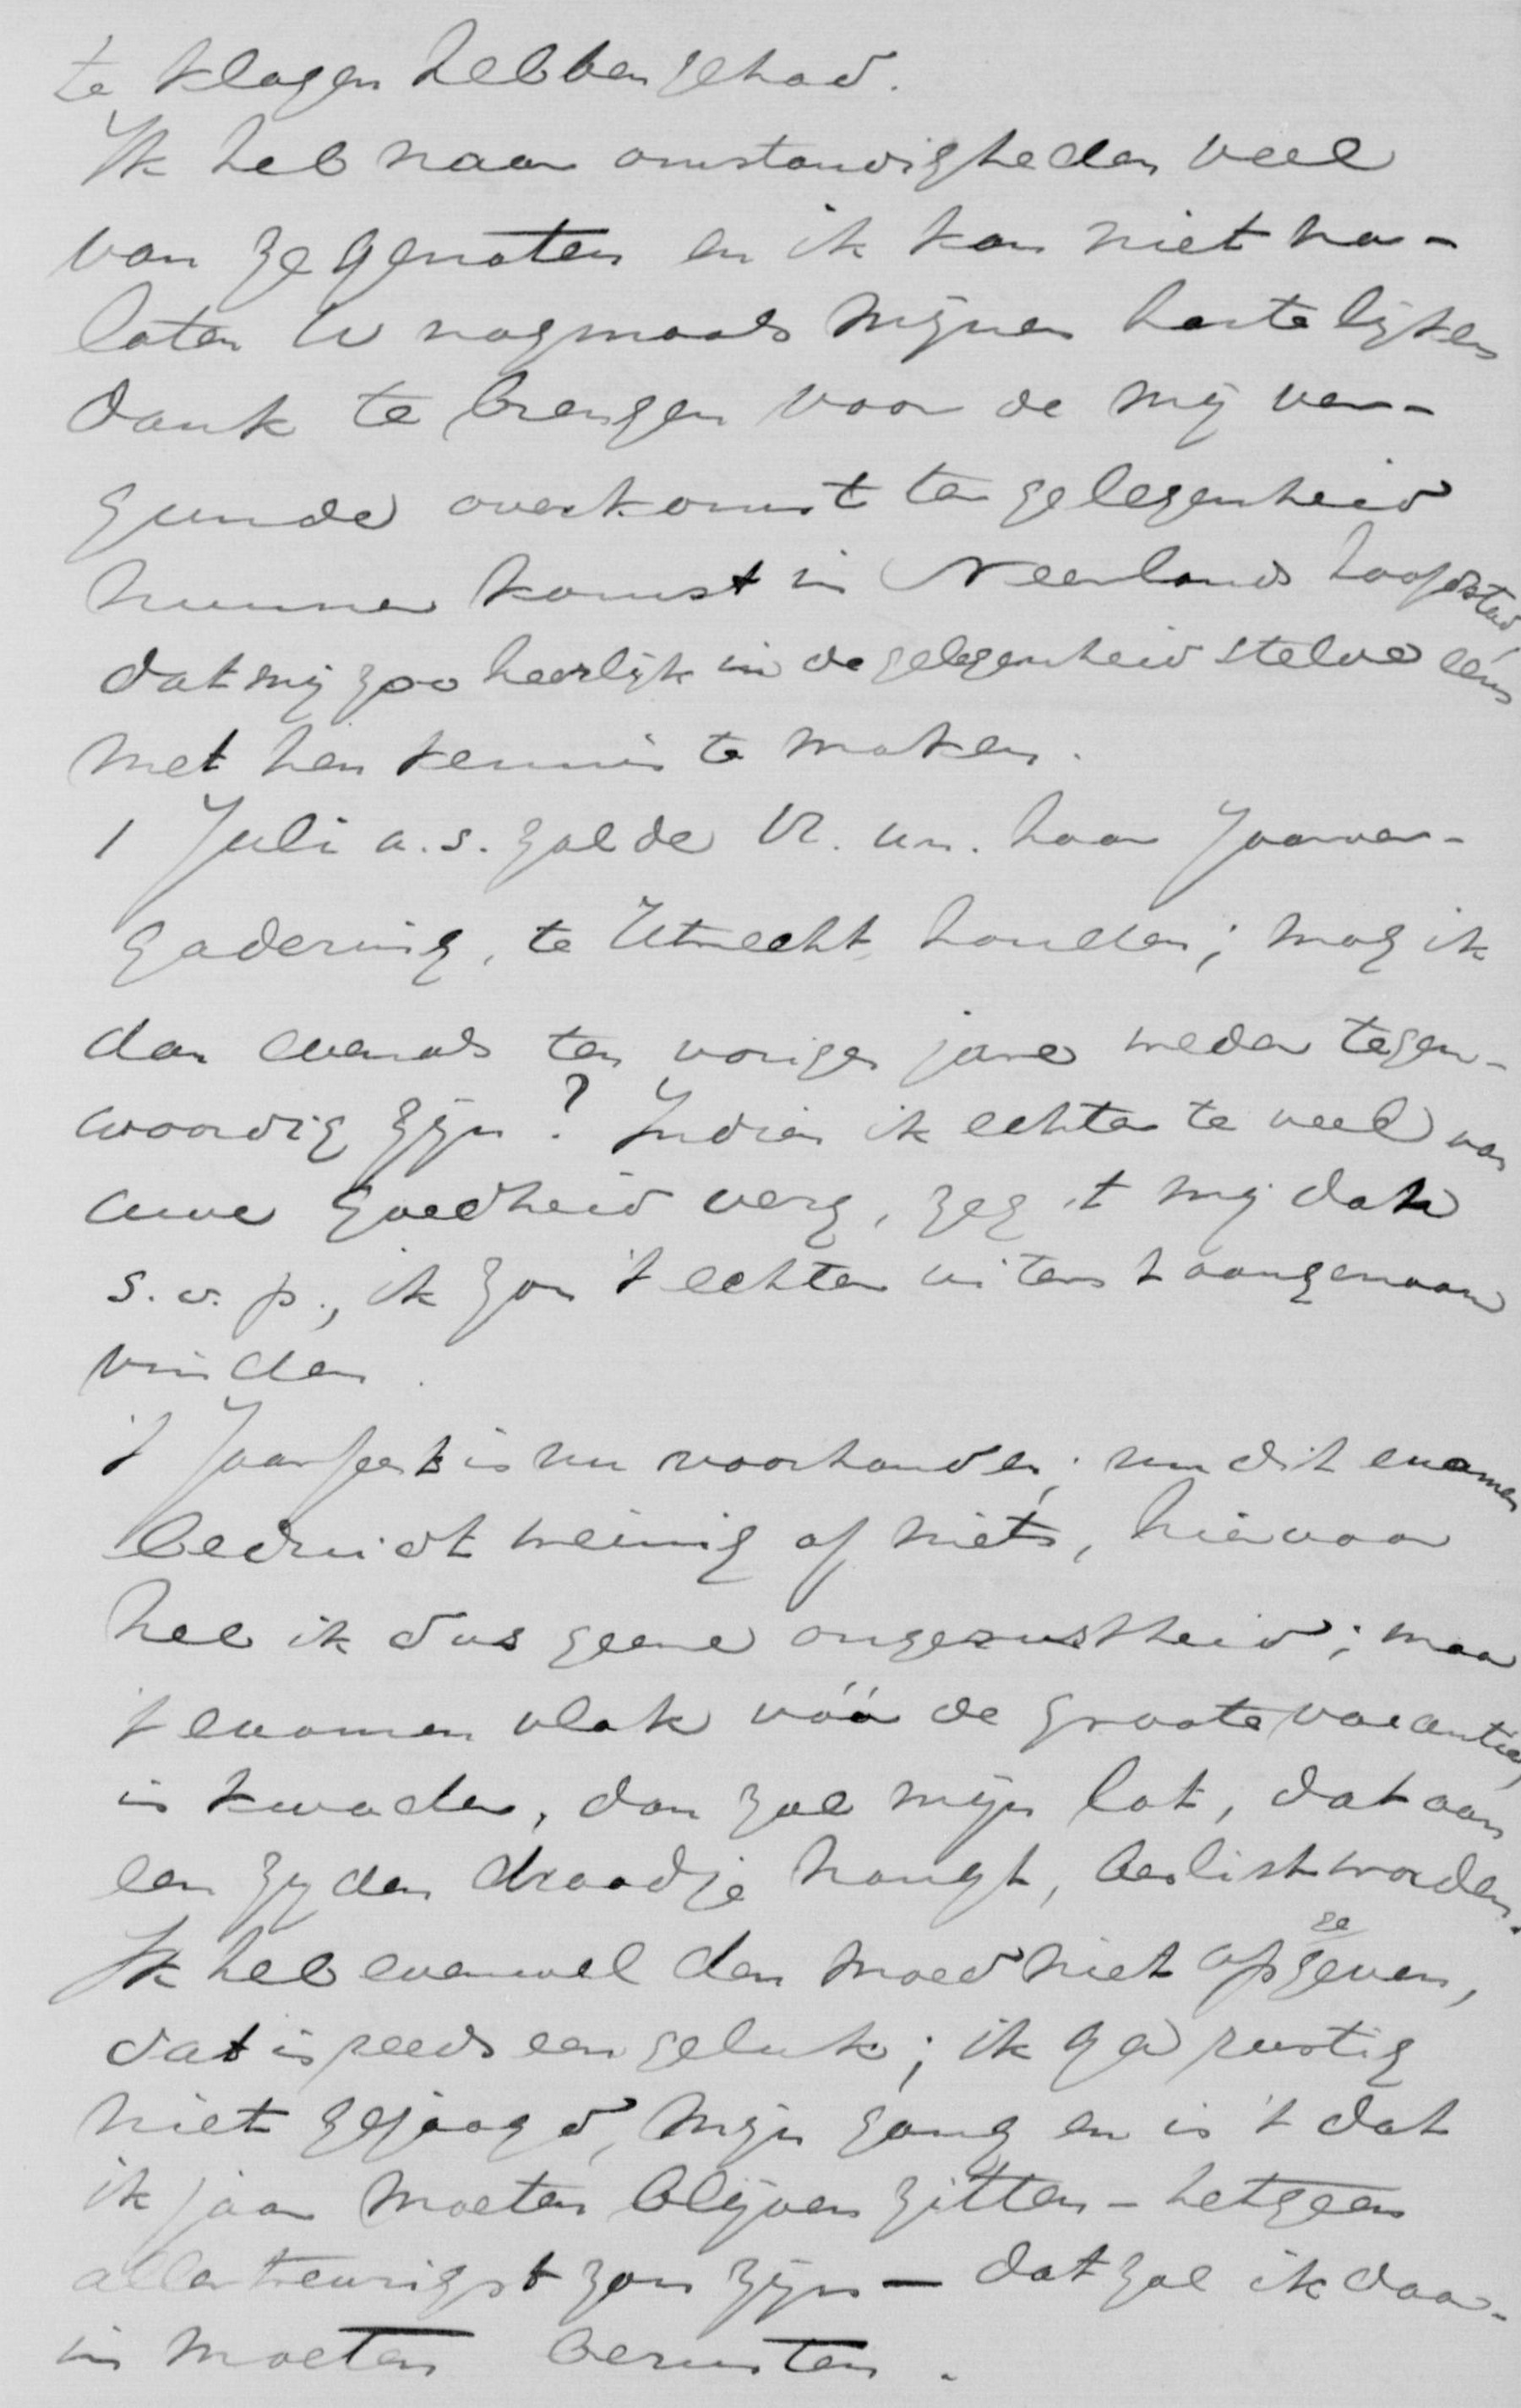 te klagen hebben gehad.
Ik heb naar omstandigheden veel
van ze genoten en ik kan niet na-
laten U nogmaals mijnen hartelijken
dank te brengen voor de mij ver-
gunde overkomst ter gelegenheid
hunner komst in Neerlands hoofdstad
dat mij zoo heerlijk in de gelegenheid stelde eens
met hen kennis te maken.
1 Juli a.s. zal de V. un. haar Jaarver-
gadering, te Utrecht, houden; mag ik
dan evenals ten vorigen jare weder tegen-
woordig zijn? Indien ik echter te veel van
uwe goedheid verg, zeg 't mij dan
s.v.p., ik zou 't echter uiterst aangenaam
vinden.
't Jaarfeest is nu voorhanden; nu dit examen
beduidt weinig of niets, hiervoor
heb ik dus geene ongerustheid; maar
't examen vlak vóór de groote vacantie,
is kwader, dan zal mijn lot, dat aan
een zijden draadje hangt, beslist worden.
Ik heb evenwel den moed niet opgegeven,
dat is reeds een geluk; ik ga rustig
niet gejaagd, mijn gang en is 't dat
ik jaar moeten blijven zitten - hetgeen
allertreurigst zou zijn - dat zal ik daar-
in moeten berusten.